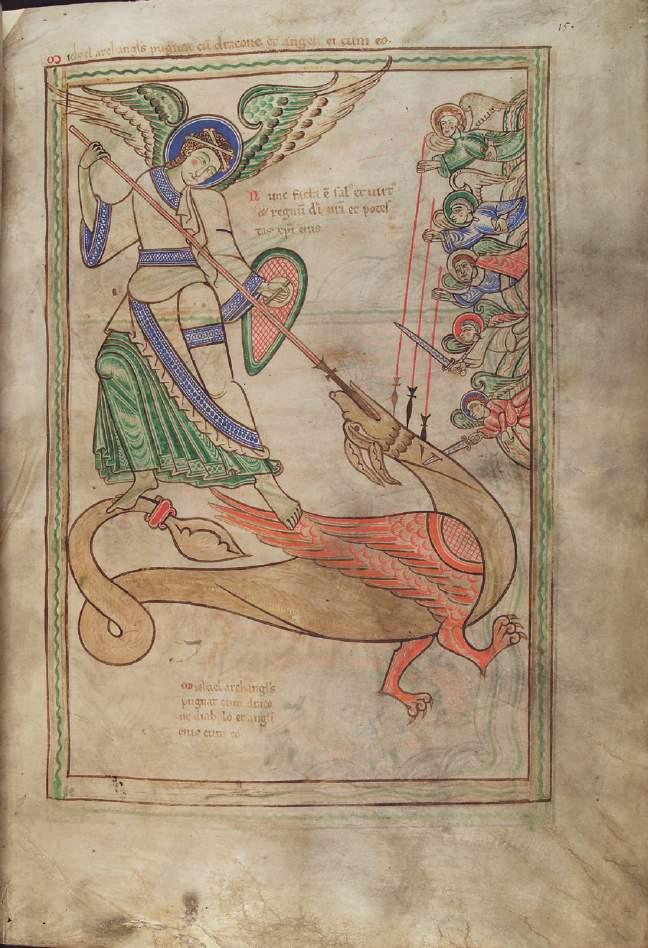 15.
Michael archangl's pugnat cū dracone et angeli ei cum eo.
Nunc facta ē sal' et virt'
et regnū dī nrī et potes
tas xpi eius
Michael archangl's
pugnat cum draco
ne diabolo et angli
eius cum eo